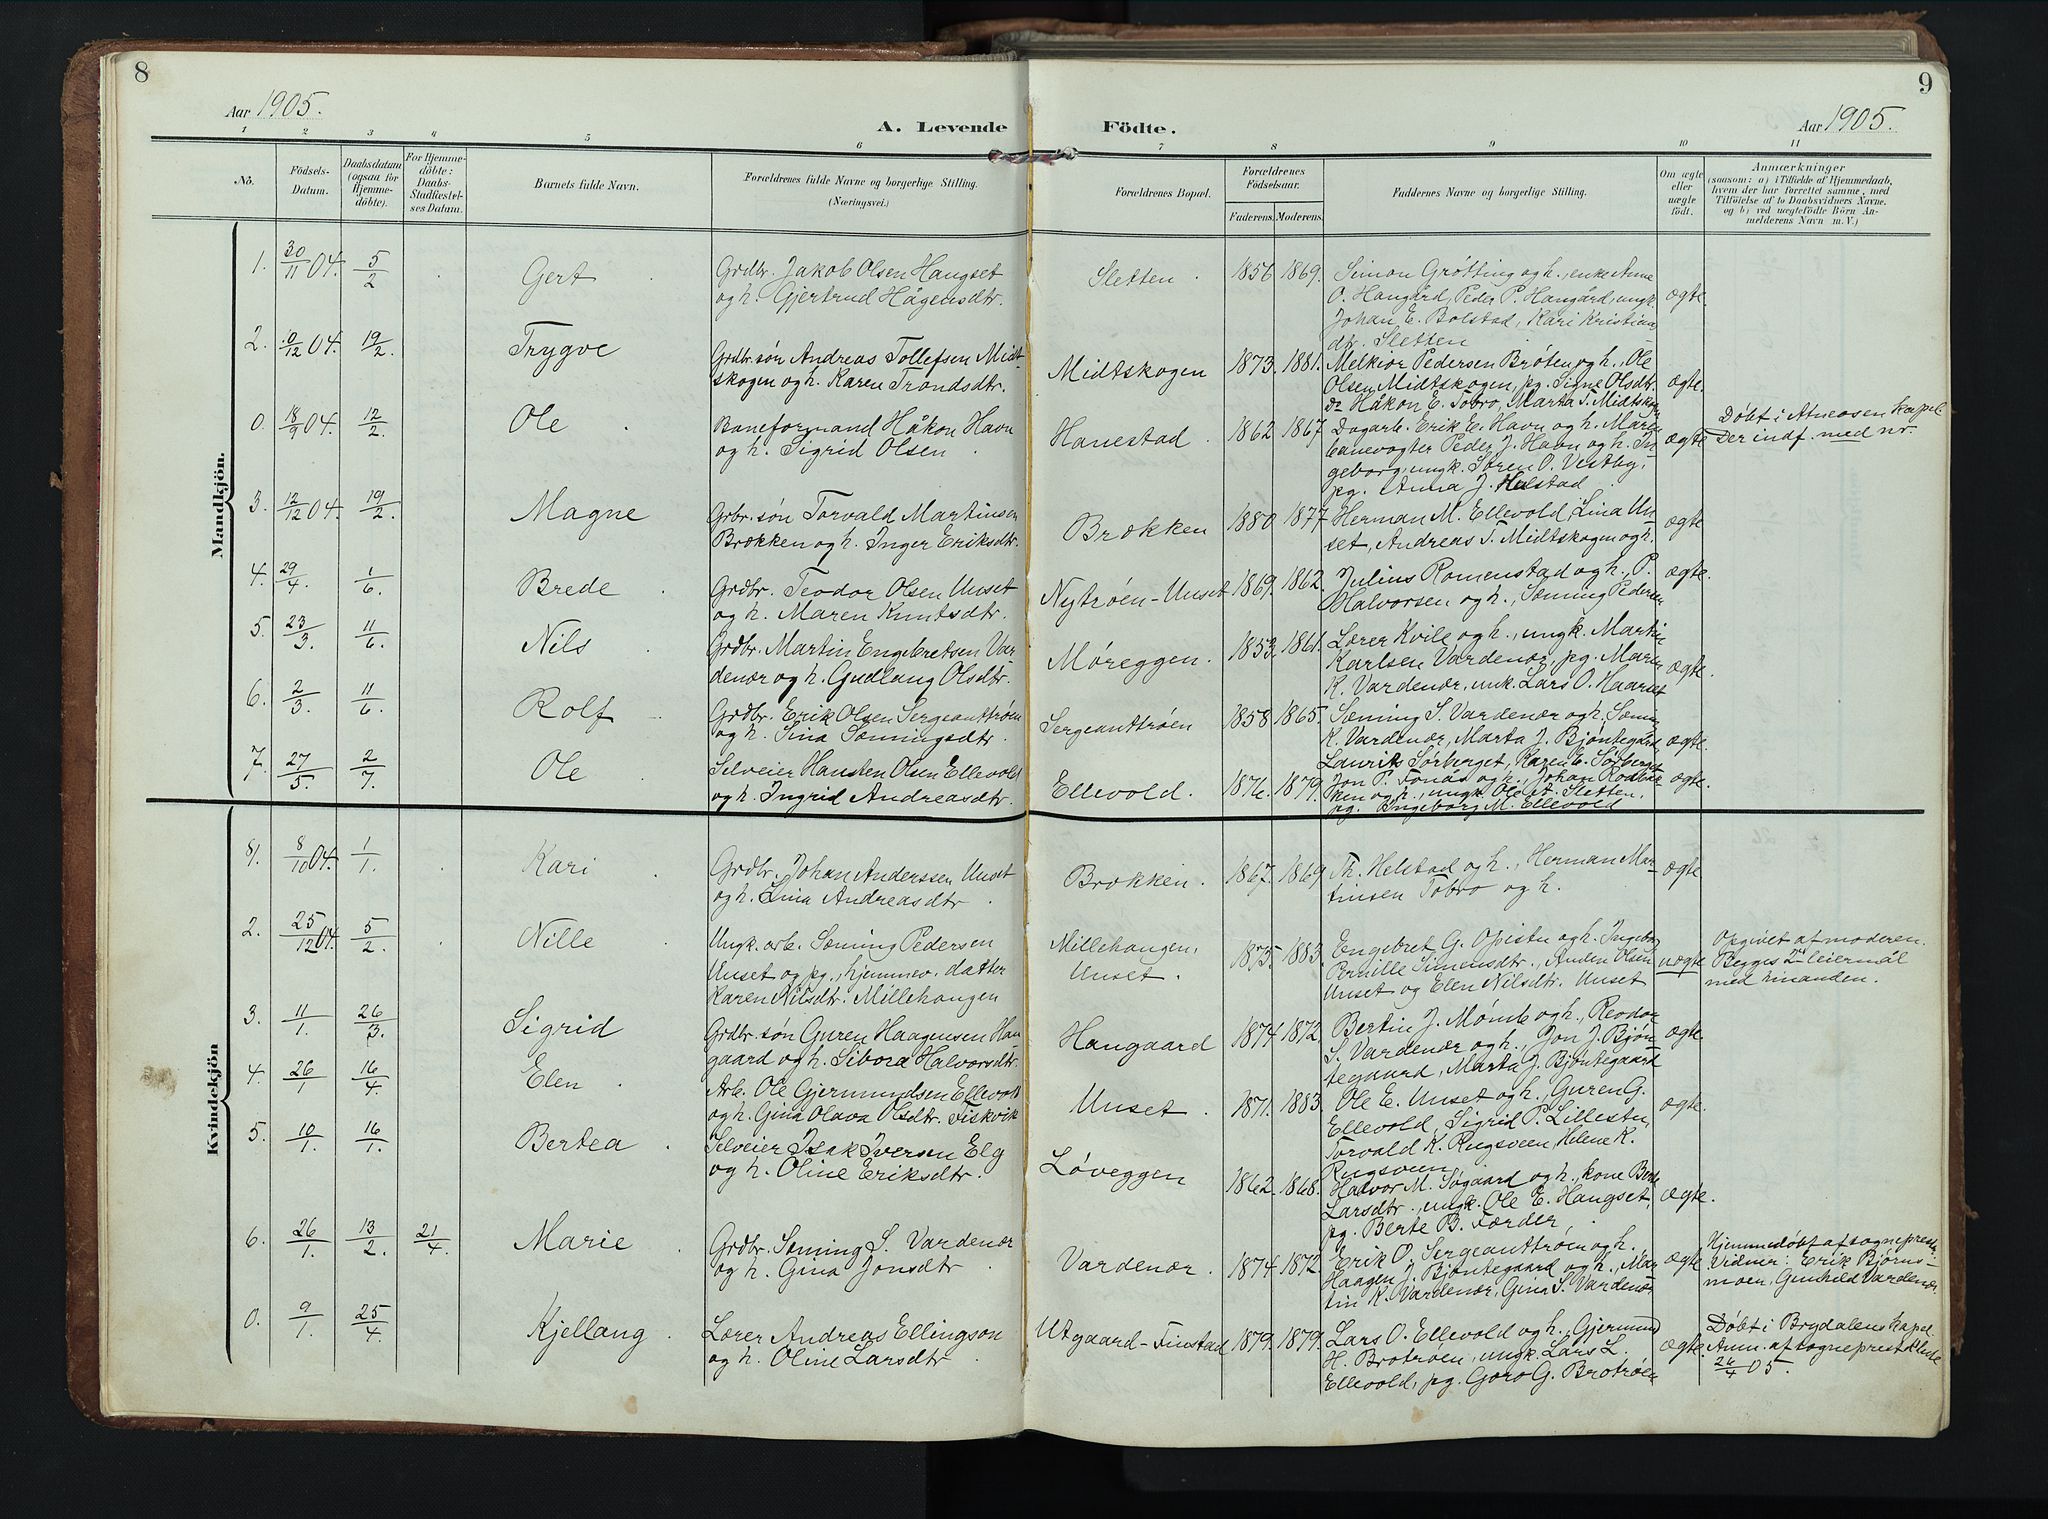 8
9
Aar 1905.
A. Levende Födte.
Aar 1905.
1 2 3 4 5 6 7 8 9 10 11
No.
Födsels-Datum.
Daabsdatum (ogsaa for Hjemmedöbte).
For Hjemmedöbte: Daabs-Stadfæstelses Datum.
Barnets fulde Navn.
Forældrenes fulde Navne og borgerlige Stilling. (Næringsvei.)
Forældrenes Bopæl.
Forældrenes Födselsaar.
Faderens. Moderens.
Faddernes Navne og borgerlige Stilling.
Om ægte eller uægte födt.
Anmærkninger
(saasom: a) i Tilfælde af Hjemmedaab,
hvem der har forrettet samme, med
Tilföielse af to Daabsvidners Navne.
og b) ved uægtefödte Börn An-
melderens Navn m. V.)
Mandkjön.
1. 30/11 04. 5/2 Gert
Grdbr. Jakob Olsen Haugset
og h. Gjertrud Hågensdtr.
Sletten. 1856 1869.
Simon Grötting og h., enke Anne
O. Haugård, Peder P. Haugård, ungk.
Johan E. Bolstad, Kari Kristian
dtr. Sletten
ægte.
2. 10/12 04. 19/2. Trygve
Grdbr. søn Andreas Tollefsen Midt
skogen og h. Karen Tróndsdtr.
Midtskogen 1873. 1881.
Melkior Pedersen Bróten og h., Ole
Olsen Midtskogen, pg. Signe Olsdtr.
Håkon E. Tobro, Marta T. Midtskog
ægte.
0. 18/9 04. 12/2. Ole
Baneformand Håkon Havn
og h. Sigrid Olsen
Hanestad. 1862 1867
Dagarb. Erik E. Havn og h. Maren
banevogter Peder J. Havn og h. In
geborg, ungk. Søren O. Vestby,
pg. Anna J. Hulstad
ægte
Døbt i Atneosen kapel.
Der indf. med nr.
3. 12/12 04. 19/2. Magne
Grbr. søn Torvald Martinsen
Brækken og h. Inger Eriksdtr.
Brækken 1880. 1877
Herman M. Ellevold, Lina Un-
set, Andreas T. Midtskogen og h.
ægte
4. 29/4. 1/6. Brede
Grdbr. Teodor Olsen Unset
og h. Maren Knutsdtr.
Nytrøen-Unset 1869. 1862.
Julius Romenstad og h., P.
Halvorsen og h., Sæming Pedersen
ægte.
5. 23/3. 11/6. Nils
Grdbr. Martin Engebretsen Var-
denær og h. Gudlaug Olsdtr.
Møreggen. 1853. 1861.
Lærer Kvile og h., ungk. Martin
Karlsen Vardenær, pg. Maren
K. Vardenær, unk. Lars O. Haarset
ægte.
6. 2/3. 11/6. Rolf
Grdbr. Erik Olsen Sergeanttrøen
og h. Sina Sæmingsdtr.
Sergeanttrøen 1858. 1865.
Sæming S. Vardenær og h., Sæmin
K. Vardenær, Marta J. Bjøntegård
Laurits Sørberget, Karen E. Sørberget
ægte.
7. 27/5. 2/7. Ole
Selveier Hansten Olsen Ellevold
og h. Ingrid Andreasdtr.
Ellevold. 1876. 1879.
Jon P. Fonås og h., Johan
ken og h., ungk. Ole A. Sletten,
pg. Ingeborg M. Ellevold
ægte.
Kvindekjön
1. 8/10 04. 1/1 Kari
Grdbr. Johan Anderssen Unset
og h. Lina Andreasdtr.
Brækken. 1867. 1869
Th. Helstad og h., Herman Mar-
tinsen Tobro og h.
ægte
2. 25/12 04. 5/2. Nille
Ungk. arb. Sæming Pedersen
Unset og pg., hjemmev. datter
Karen Nilsdtr. Millehaugen
Millehaugen,
Unset. 1875. 1883.
Engebret G. Opistu og h. Ingebor
Pernille Simensdtr., Anden Olsen
Unset og Elen Nilsdtr. Unset
uægte
Opgivet af moderen.
Begges 2det leiermål
med hinanden.
3. 11/1. 26/3. Sigrid
Grdbr. søn Guren Haagensen Hau
gaard og h. Sibora Halvorsdtr.
Haugaard 1874 1872.
Bertin J. Mømb og h., Reodor
S. Vardenær og h., Jon J. Bjøn
tegaard, Marta J. Bjøntegaard
ægte.
4. 26/1 16/4. Elen
Arb. Ole Gjermundsen Ellevold
og h. Gina Olava Olsdtr. Fiskvik
Unset. 1871. 1883.
Ole E. Unset og h., Guren G.
Ellevold, Sigrid P. Lillestu,
Torvald K. Rugsveen, Helene K.
Rugsveen
ægte.
5. 10/1. 16/1. Bertea
Selveier Isak Iversen Elg
og h. Oline Eriksdtr.
Løveggen 1862. 1868.
Halvor M. Søgaard og h., kone Berte
Larsdtr., ungk. Ole E. Haugset,
pg. Berte B. Færder,
ægte.
6. 26/1. 13/2. 21/4. Marie
Grdbr. Sæming S. Vardenær
og h. Gina Jonsdtr.
Vardenær. 1874 1872
Erik O. Sergeanttrøen og h.
Haagen J. Bjøntegaard og h., Mar
tin K. Vardenær, Gina S. Vardenær
ægte
Hjemmedøbt af sogneprest.
Vidner: Erik Bjørns-
moen, Gunhild Vardenær.
0. 9/1. 25/4. Kjellaug
Lærer Andreas Ellingson
og h. Oline Larsdtr
Utgaard-Finstad 1879. 1879.
Lars O. Ellevold og h., Gjermund
H. Brotrøen, ungk. Lars L.
Ellevold, pg. Goro G. Brotrøen
ægte.
Døbt i Brydalens kapel.
Anm. af sogneprest
26/4 05.